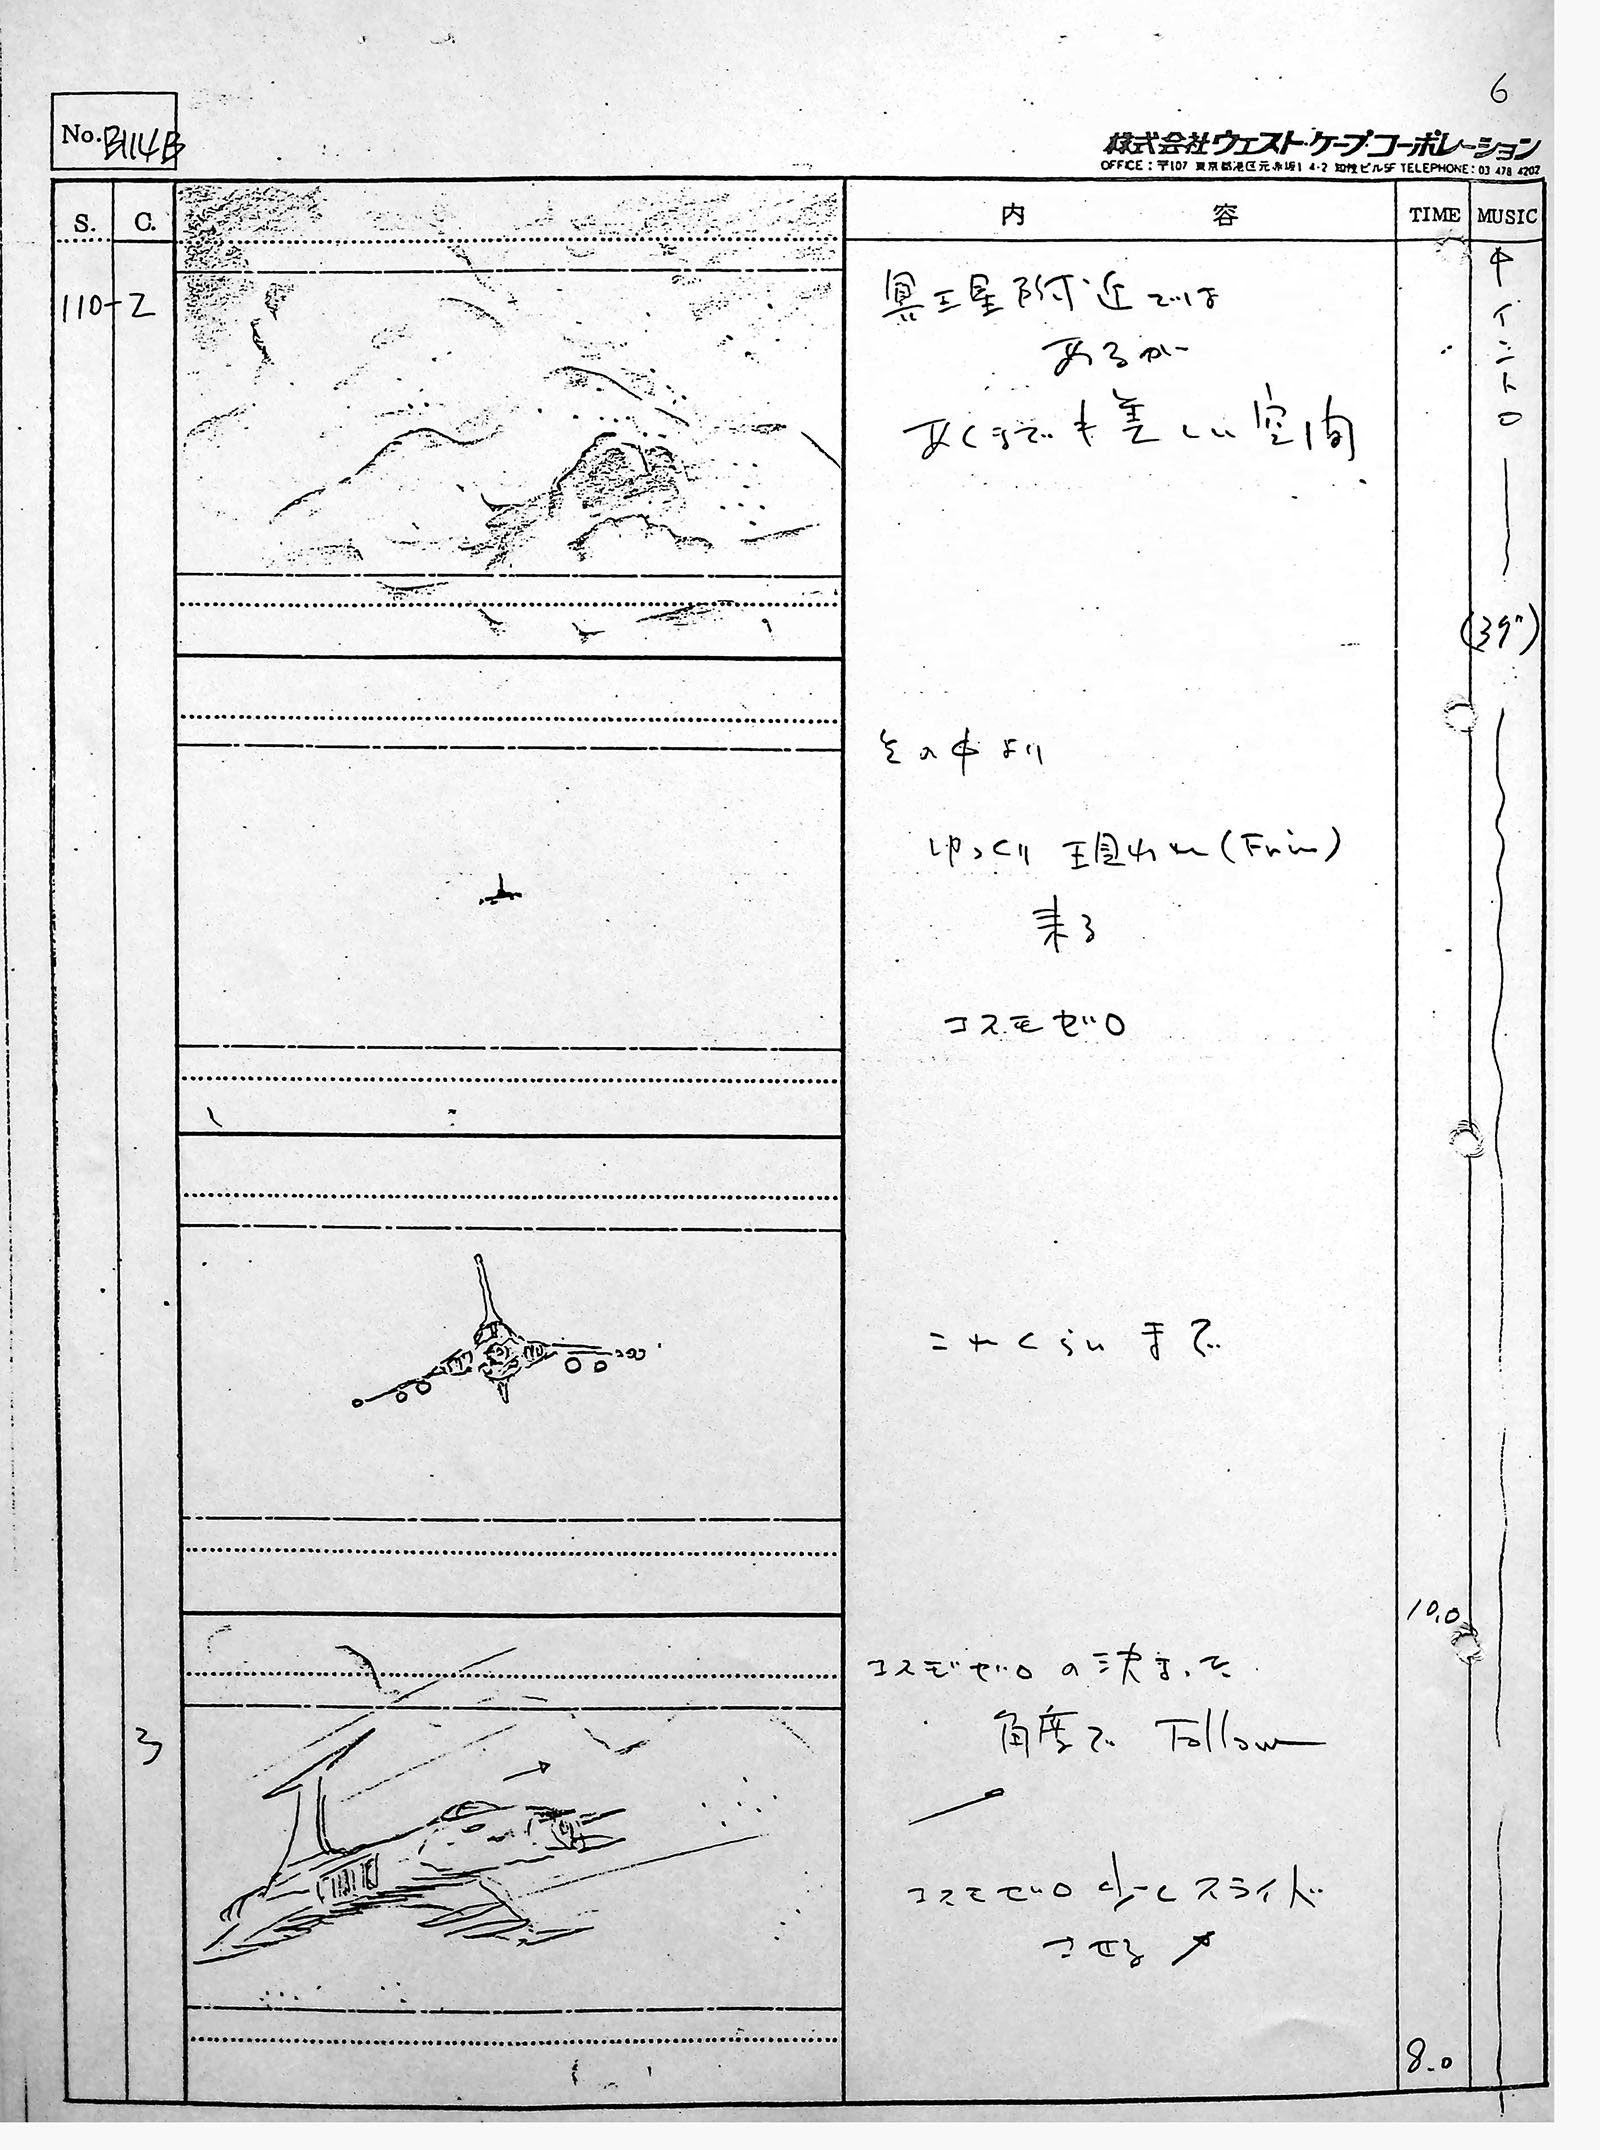 6
No. B114B
株式会社ウェスト・ケープ・コーポレーション
OFFICE : 〒107 東京都港区元赤坂1 4-2 ビル5F TELEPHONE : 03 478 4202
S. C. 内 容 TIME MUSIC
110-2
冥王星附近では
あるが
あくまでも美しい空間
イントロ
(39")
その中より
ゆっくり現われ(F・in)
来る
コスモゼロ
これくらいまで
10.0
3
コスモゼロの決まった
角度で Follow
コスモゼロ少しスライド
させる
8.0